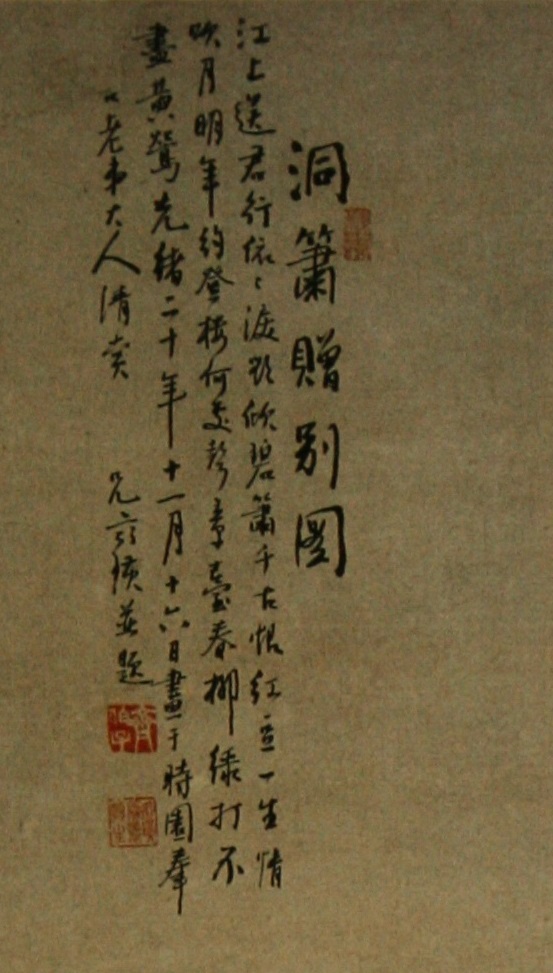 洞簫贈別圖
江上送君行依〻淚碧簫千古恨紅豆一生情
吹月明年約登樓何處聲章臺春柳綠打不
盡黃鶯光緒二十年十一月十六日畫于時園奉
老弟大人清賞 兄璜並題